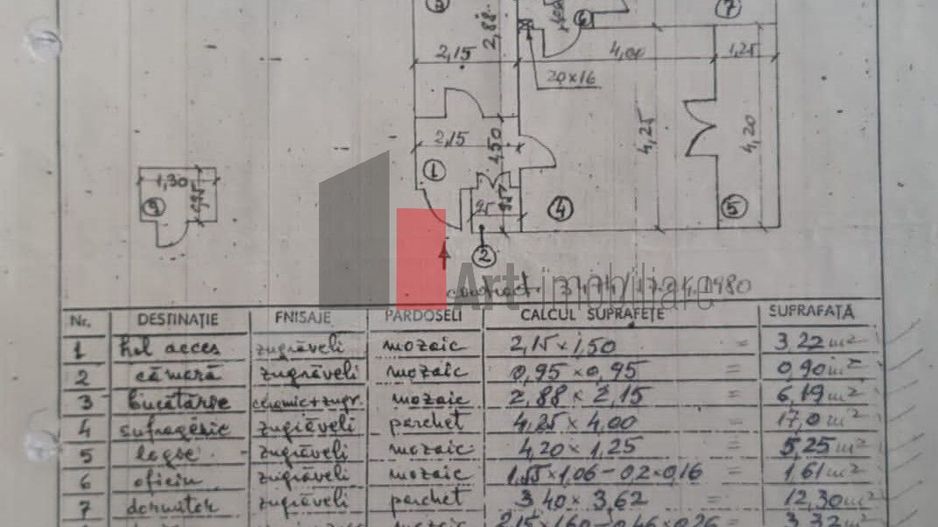 3
2,88
6
7
2,15
4,00
1,25
20x16
2,15
1,50
4,25
4,20
1
1,30
9
4
5
2
Art imobiliare
contract 1980
Nr. DESTINAȚIE FNISAJE PARDOSELI CALCUL SUPRAFEȚE SUPRAFAȚĂ
1 hol acces zugrăveli mozaic 2,15 x 1,50 = 3,22 m²
2 cămară zugrăveli mozaic 0,95 x 0,95 = 0,90 m²
3 bucătărie ceramic+zugr. mozaic 2,88 x 2,15 = 6,19 m²
4 sufragerie zugrăveli parchet 4,25 x 4,00 = 17,0 m²
5 logie zugrăveli mozaic 4,20 x 1,25 = 5,25 m²
6 oficiu zugrăveli mozaic 1,55 x 1,06 - 0,2 x 0,16 = 1,61 m²
7 dormitor zugrăveli parchet 3,40 x 3,62 = 12,30 m²